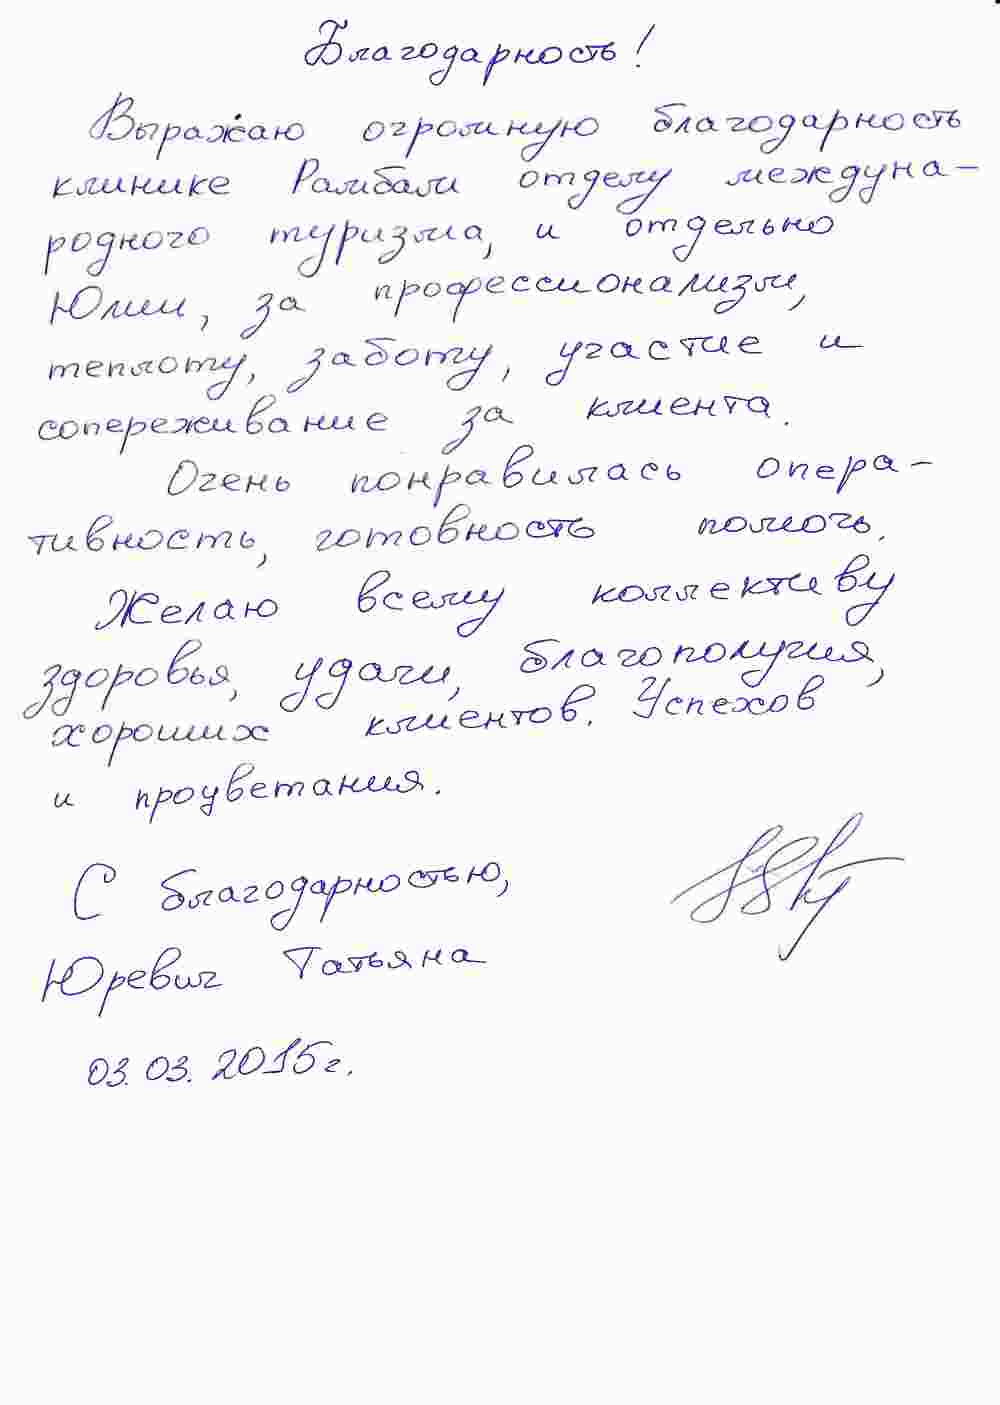 Благодарность!
Выражаю огромную благодарность
клинике Рамбам отделу междуна-
родного туризма, и отдельно
Юлии, за профессионализм,
теплоту, заботу, участие и
сопереживание за клиента.
Очень понравилась опера-
тивность, готовность помочь.
Желаю всему коллективу
здоровья, удачи, благополучия,
хороших клиентов. Успехов
и процветания.
С благодарностью,
Юревич Татьяна
03.03.2015г.